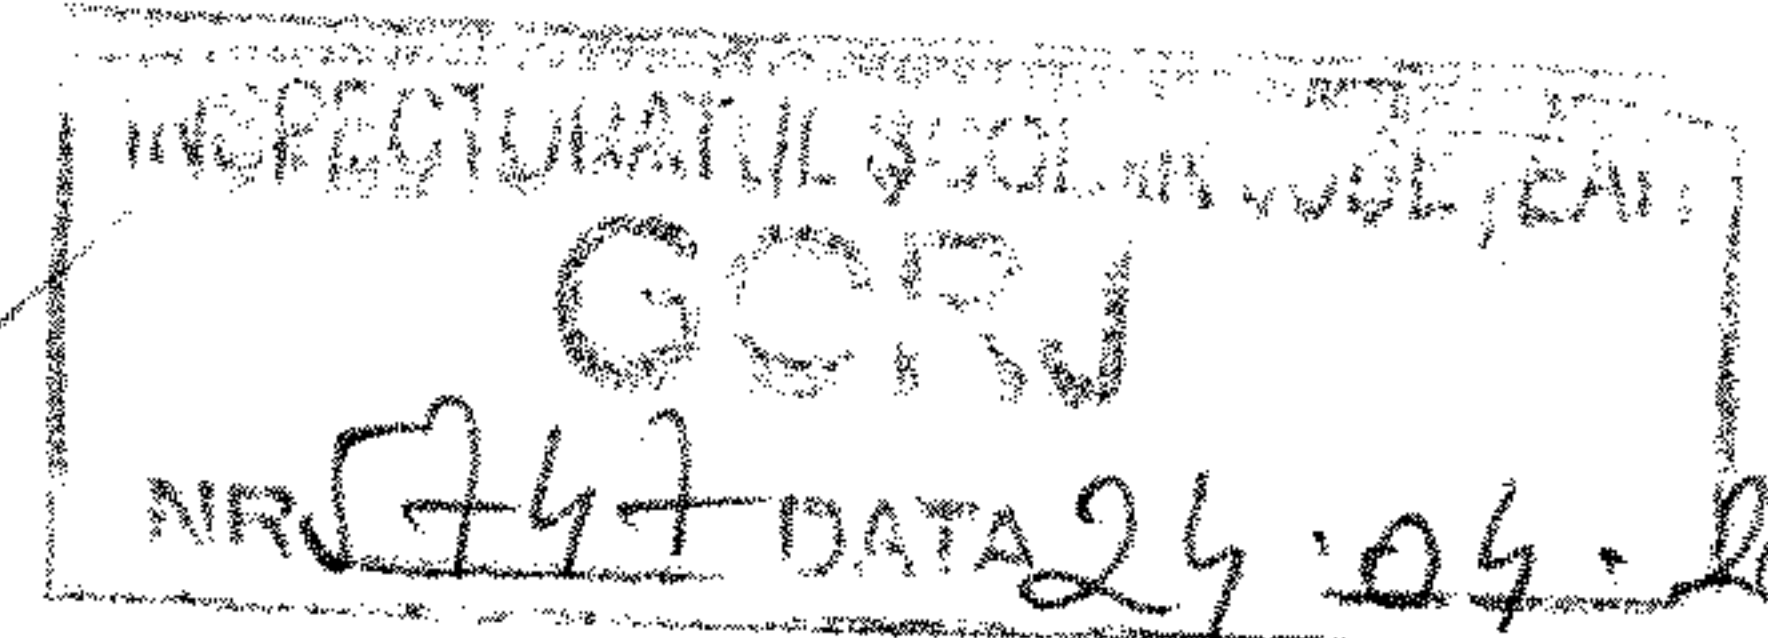 INSPECTORATUL ȘCOLAR JUDEȚEAN
GORJ
NR 5747 DATA 24.04.2